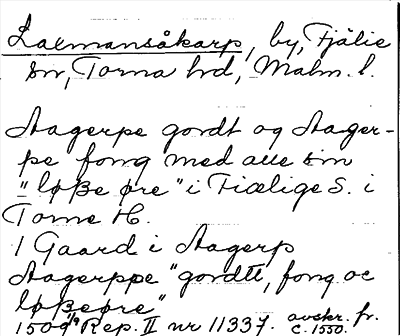 Laxmansåkarp, by, Fjälie
sn, Torna hd, Malm. l.
Aagerpe gordt og Aager-
pe fong med alle sin
"løsze øre" i Fiælige S. i
Torne H.
1 Gaard i Aagerp
Aagerppe "gordtt, fong oc
løszeøre"
1509 Rep. II nr 11337. avskr. fr.
c. 1550.